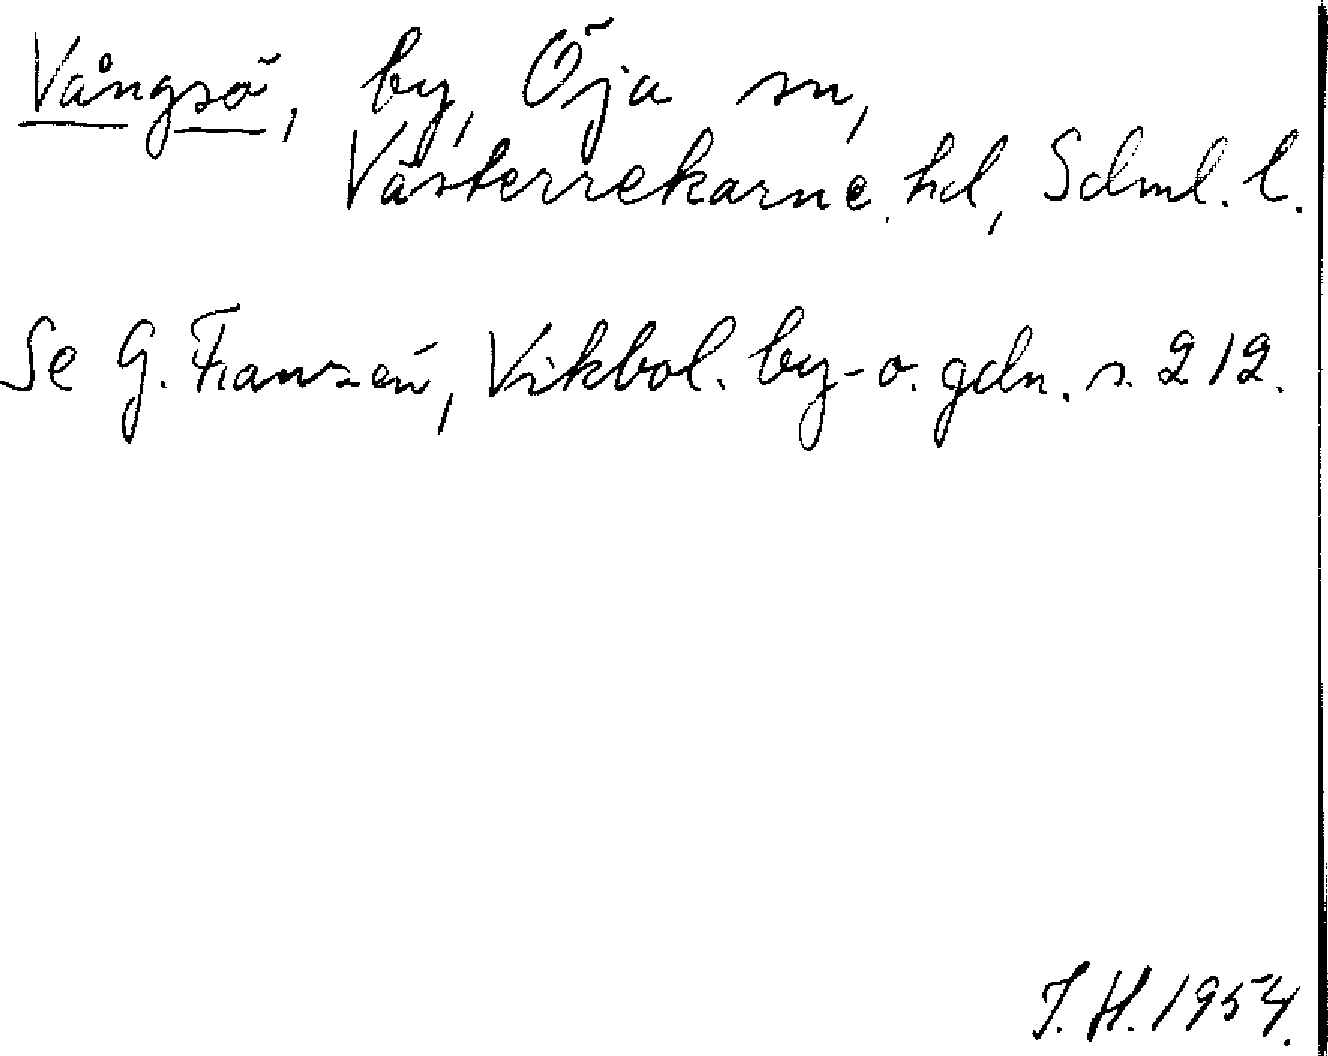 Vångsö, by, Öja sn,
Västerrekarne hd, Sdml. l.
Se G. Franzén, Vikbol. by- o. gdn. s. 212.
J. H. 1954.